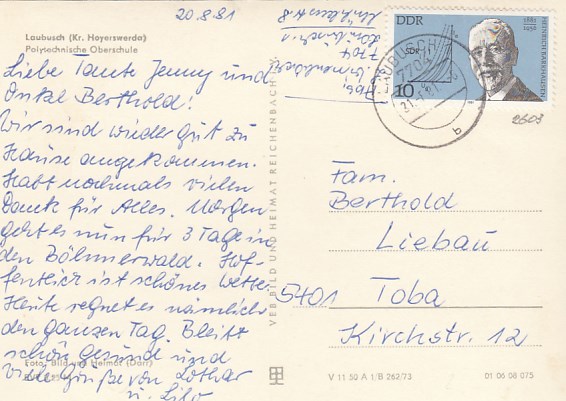 20.8.81
Laubusch (Kr. Hoyerswerda)
Polytechnische Oberschule
Liebe Tante Jenny und
Onkel Berthold!
Wir sind wieder gut zu
Hause angekommen.
Habt nochmals vielen
Dank für Alles. Morgen
geht es nun für 3 Tage in
den Böhmerwald. Hof-
fentlich ist schönes Wetter.
Heute regnet es nämlich
den ganzen Tag. Bleibt
schön gesund und
viele Grüße von Lothar
u. Lilo
Foto: Bild und Heimat (Dörr)
VEB BILD UND HEIMAT REICHENBACH
Abs.
7704
DDR
10
1881
1956
HEINRICH BARKHAUSEN
LAUBUSCH
7704
2603
Fam.
Berthold
Liebau
5401 Toba
Kirchstr. 12
V 11 50 A 1/B 262/73
01 06 08 075